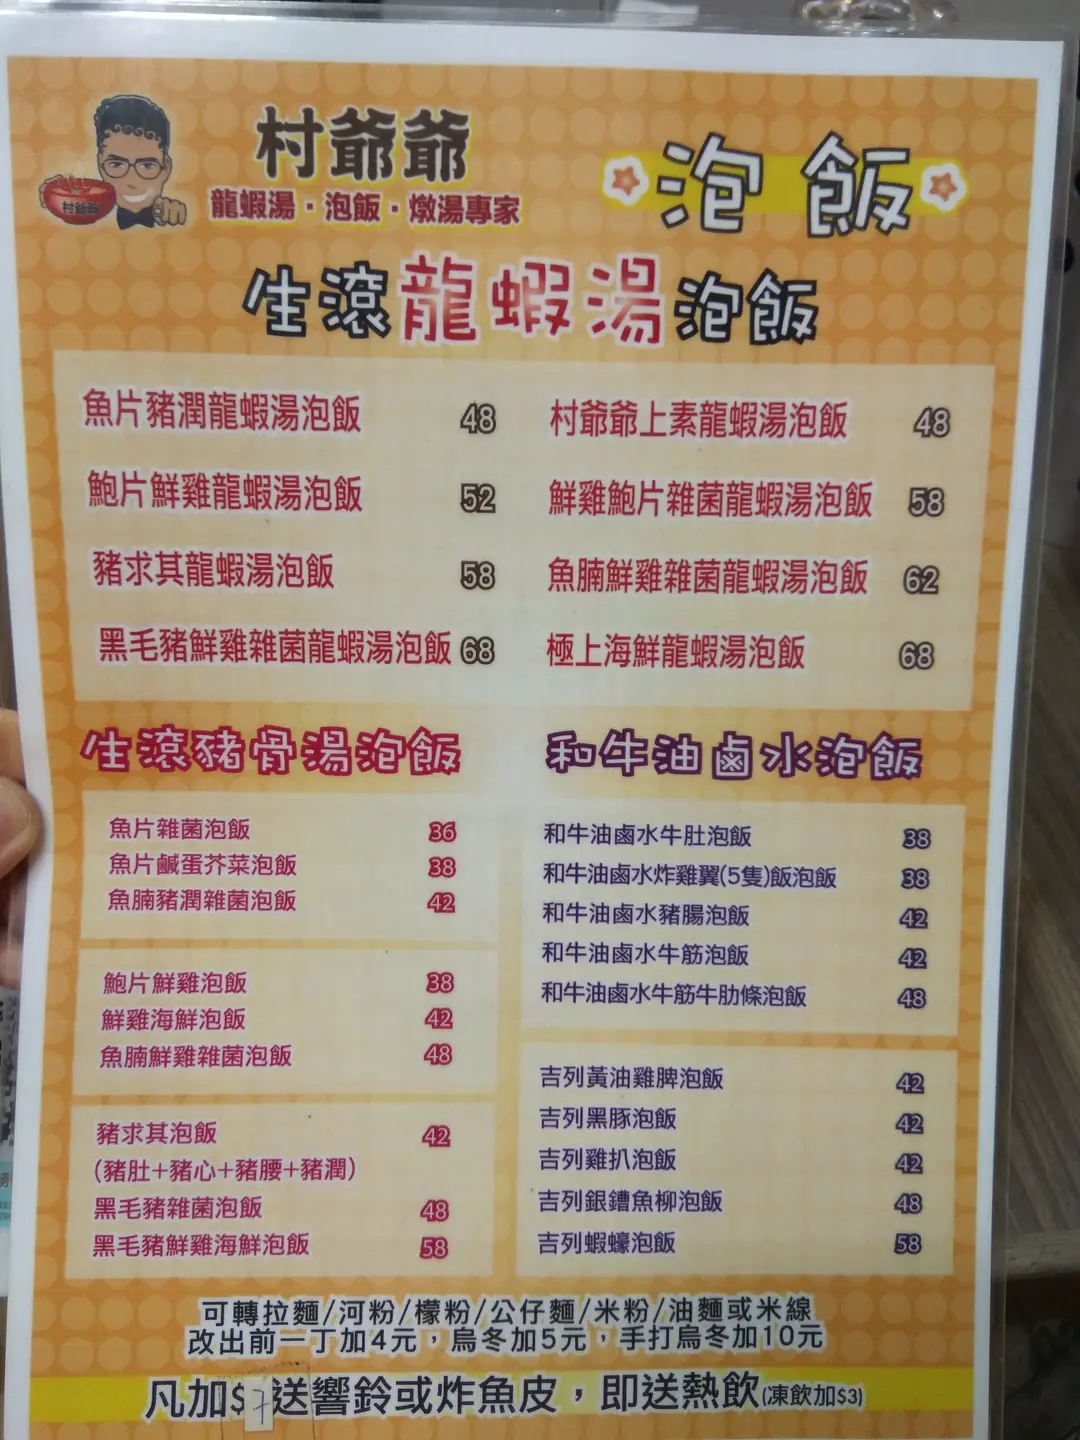 村爺爺
村爺爺
龍蝦湯·泡飯·燉湯專家
泡飯
生滾龍蝦湯泡飯
魚片豬潤龍蝦湯泡飯 48
鮑片鮮雞龍蝦湯泡飯 52
豬求其龍蝦湯泡飯 58
黑毛豬鮮雞雜菌龍蝦湯泡飯 68
村爺爺上素龍蝦湯泡飯 48
鮮雞鮑片雜菌龍蝦湯泡飯 58
魚腩鮮雞雜菌龍蝦湯泡飯 62
極上海鮮龍蝦湯泡飯 68
生滾豬骨湯泡飯
魚片雜菌泡飯 36
魚片鹹蛋芥菜泡飯 38
魚腩豬潤雜菌泡飯 42
鮑片鮮雞泡飯 38
鮮雞海鮮泡飯 42
魚腩鮮雞雜菌泡飯 48
豬求其泡飯 42
(豬肚+豬心+豬腰+豬潤)
黑毛豬雜菌泡飯 48
黑毛豬鮮雞海鮮泡飯 58
和牛油鹵水泡飯
和牛油鹵水牛肚泡飯 38
和牛油鹵水炸雞翼(5隻)飯泡飯 38
和牛油鹵水豬腸泡飯 42
和牛油鹵水牛筋泡飯 42
和牛油鹵水牛筋牛肋條泡飯 48
吉列黃油雞脾泡飯 42
吉列黑豚泡飯 42
吉列雞扒泡飯 42
吉列銀鱈魚柳泡飯 48
吉列蝦蠔泡飯 58
可轉拉麵/河粉/檬粉/公仔麵/米粉/油麵或米線
改出前一丁加4元，烏冬加5元，手打烏冬加10元
凡加$7送響鈴或炸魚皮，即送熱飲(凍飲加$3)